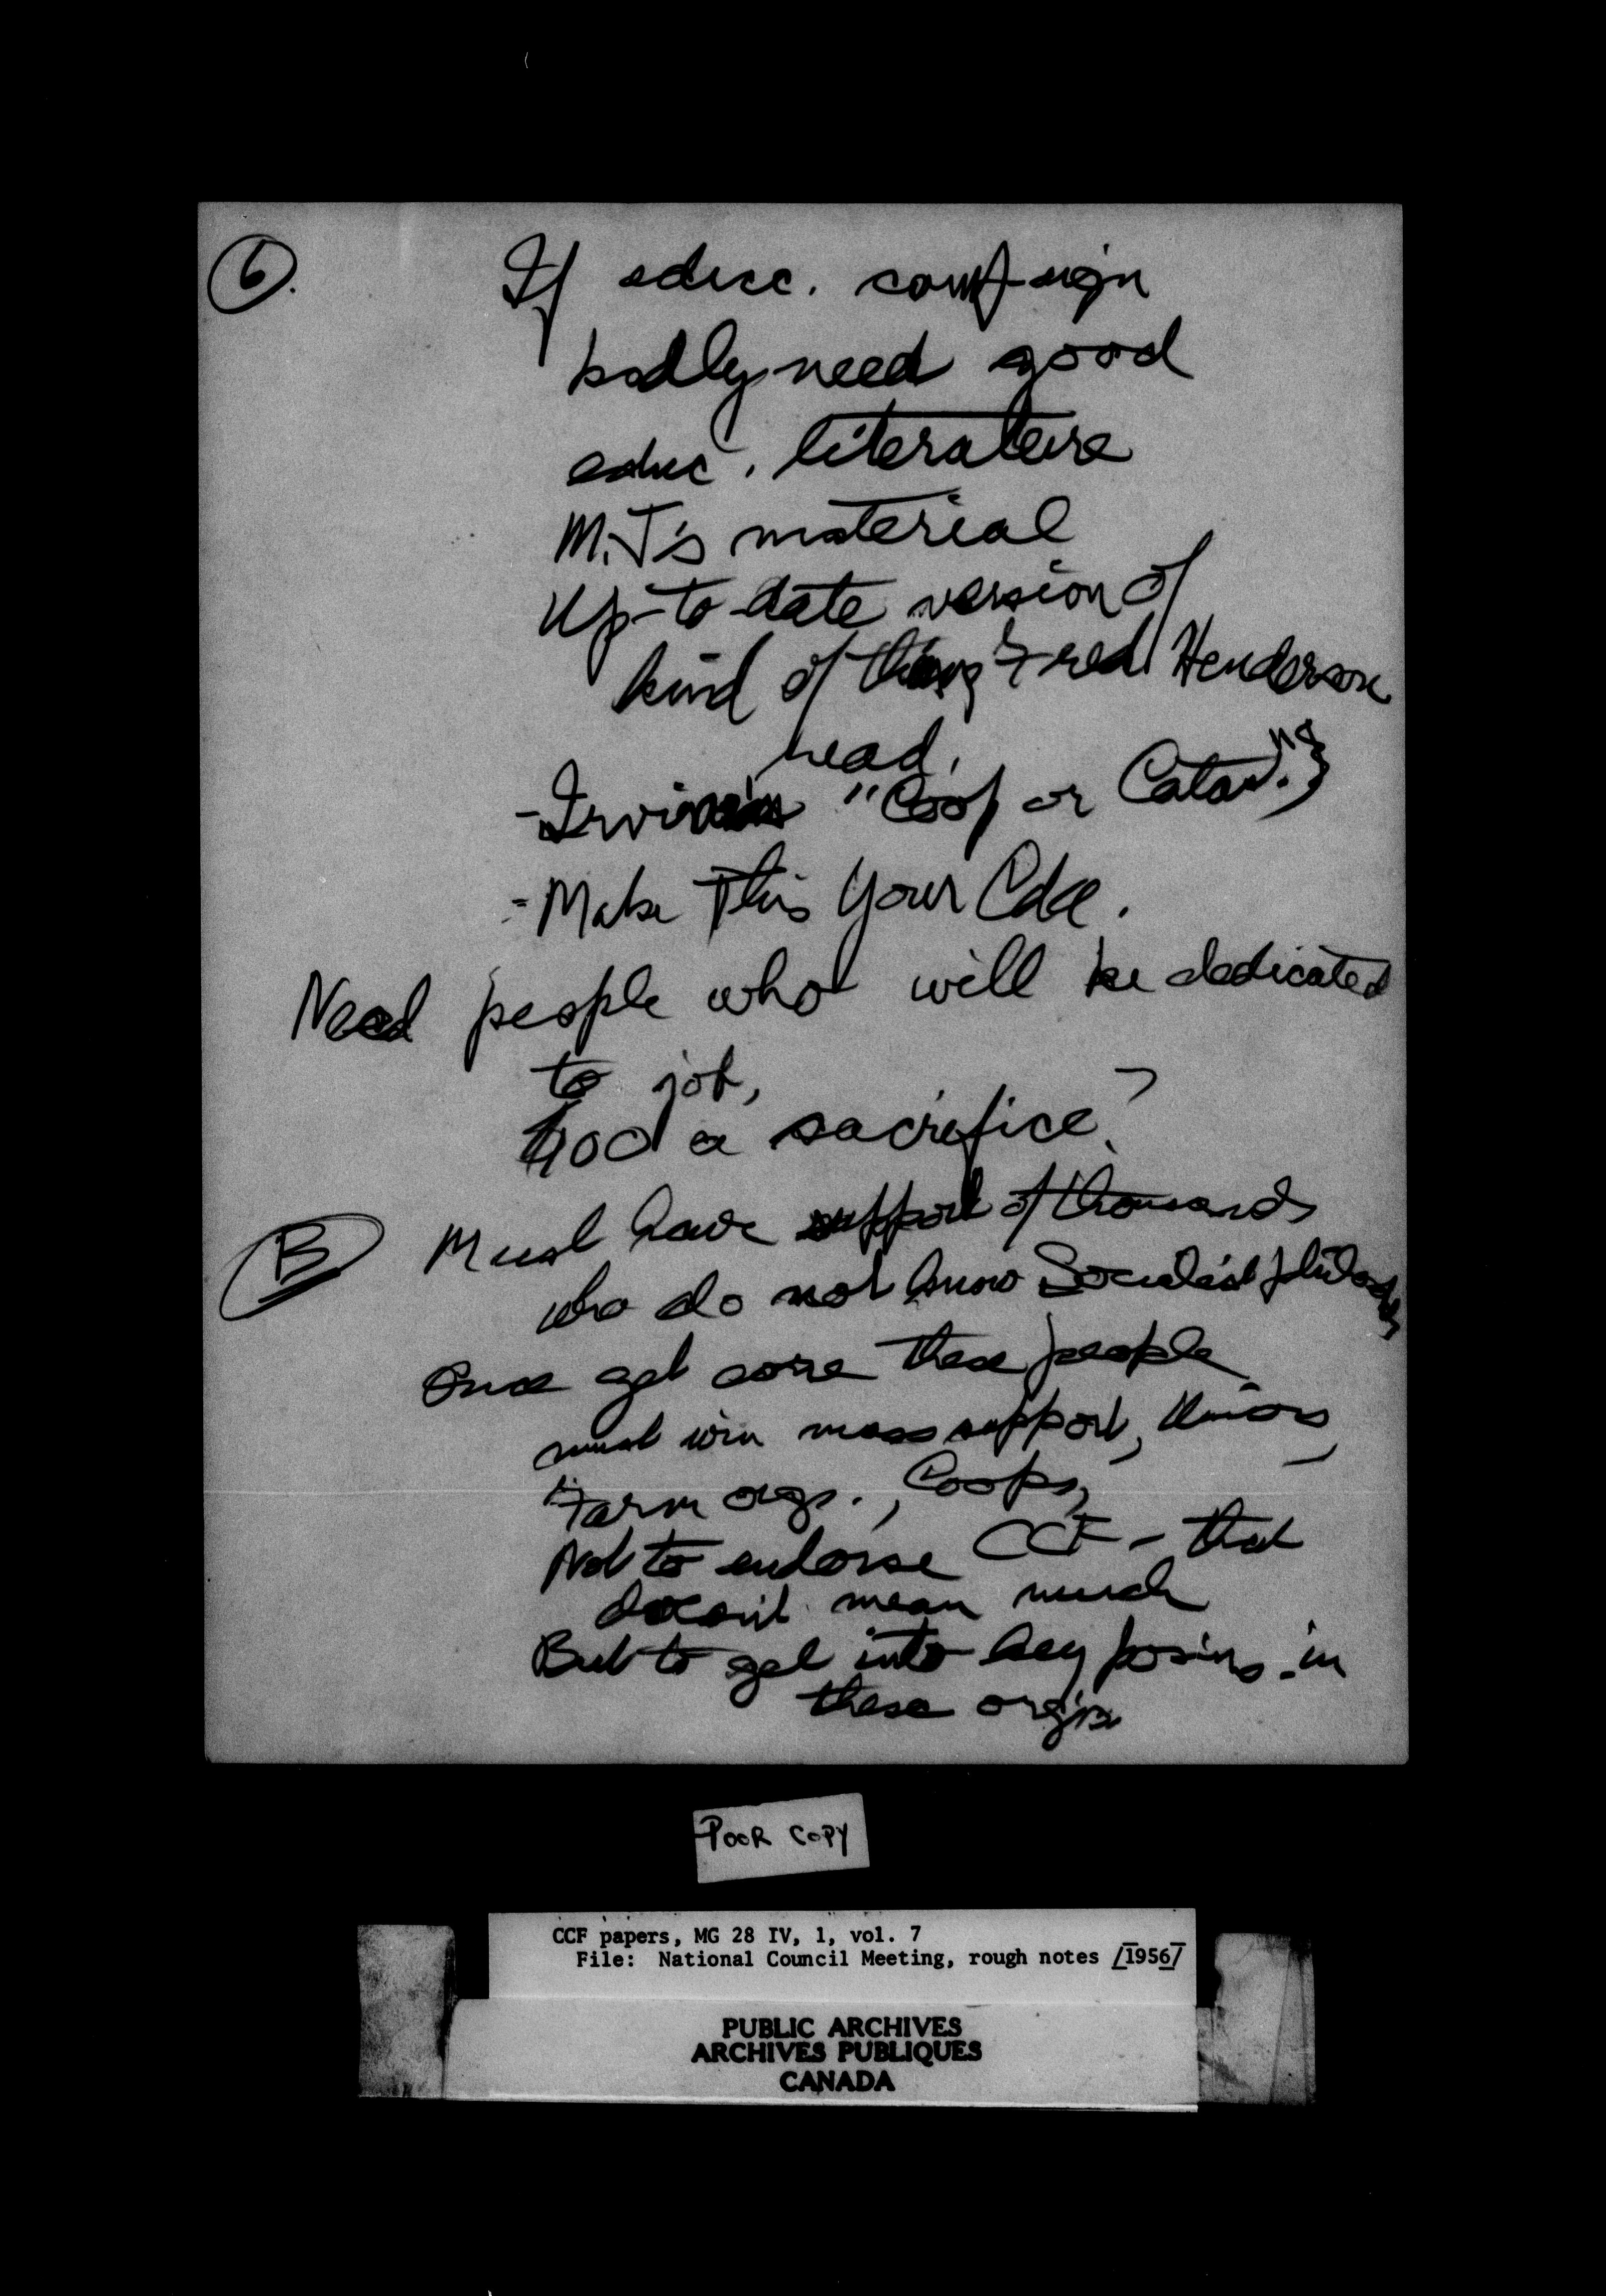 6.
If educ. campaign
badly need good
educ. literature
M.J's material
Up-to-date version of
kind of thing Fred Henderson
head,
- "Coop or Catas."
- Make This Your Cda.
Need people who will be dedicated
to job,
a sacrifice?
B Must have support of thousands
who do not know Socialist philosophy
Once get core these people
must win mass support, Unions
Farm orgs., Coops,
Not to endorse CCF - that
doesn't mean much
But to get into key pos'ns in
these org'ns
POOR COPY
CCF papers, MG 28 IV, 1, vol. 7
File: National Council Meeting, rough notes /1956/
PUBLIC ARCHIVES
ARCHIVES PUBLIQUES
CANADA